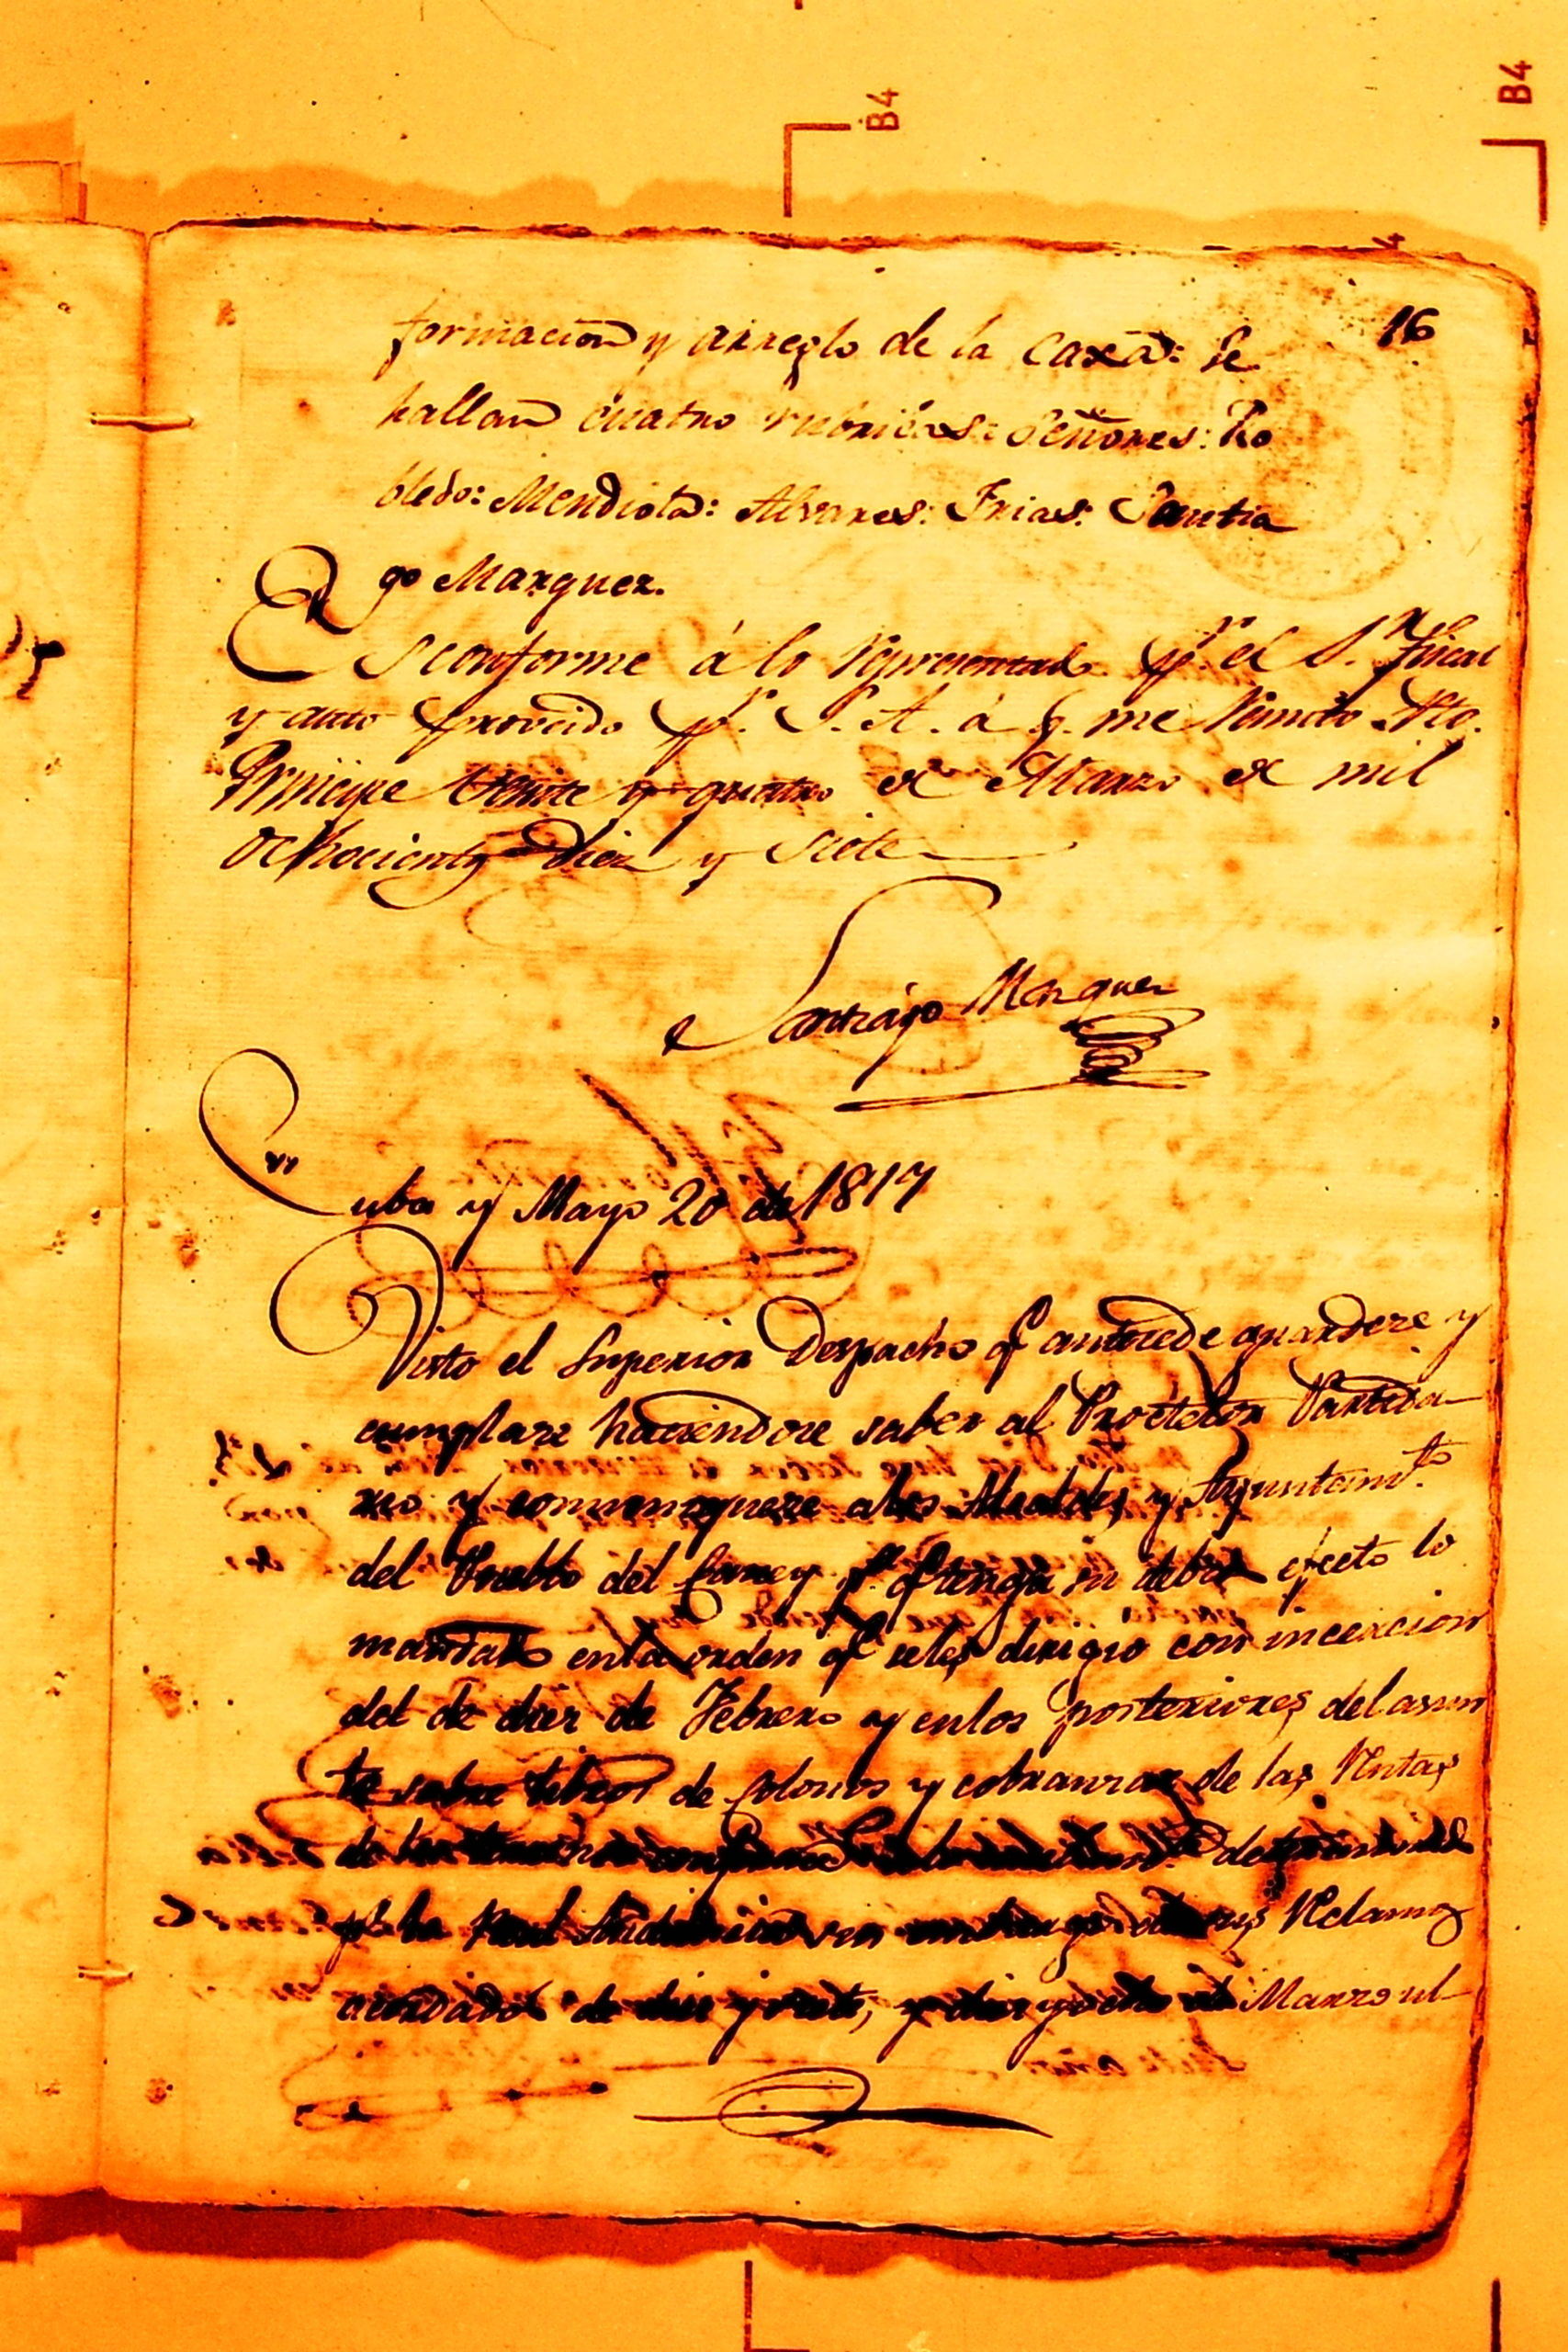 B4
B4
16
formacion y arreglo de la Caxa: se
hallan cuatro rubricas: Señores: Ro
bledo: Mendiola: Alvares: Frias: Santia
go Marquez.
Es conforme á lo representado pr. el Sr. Fiscal
y auto proveido pr. S. A. á q. me remito Pto.
Principe Veinte y quatro de Marzo de mil
ochocientos diez y siete
Santiago Marquez
Cuba y Mayo 20 de 1817
Visto el Superior Despacho q antecede guardese y
cumplase haciendose saber al Protector Partida
rio y comuniquese a los Alcaldes y Ayuntamto.
del Pueblo del Caney pa. q tenga su debido efecto lo
mandado en la orden q se les dirigio con incercion
del de diez de Febrero y en los posteriores del asun
to sobre libros de Colonos y cobranzas de las Rentas
de
pr. la Real Audiencia en Reclamos
de diez y siete, y diez y ocho de Marzo ul